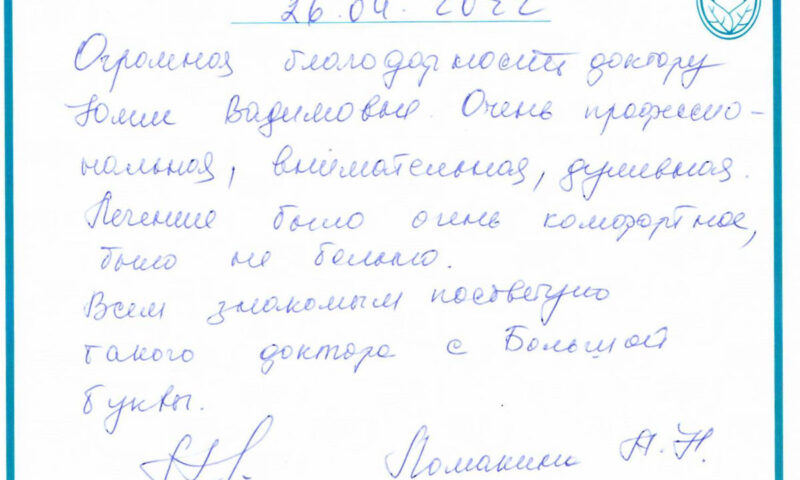 26.04.2022
Огромная благодарность доктору
Юлии Вадимовне. Очень профессио-
нальная, внимательная, душевная.
Лечение было очень комфортное,
было не больно.
Всем знакомым посоветую
такого доктора с Большой
буквы.
Ломакина А.Н.